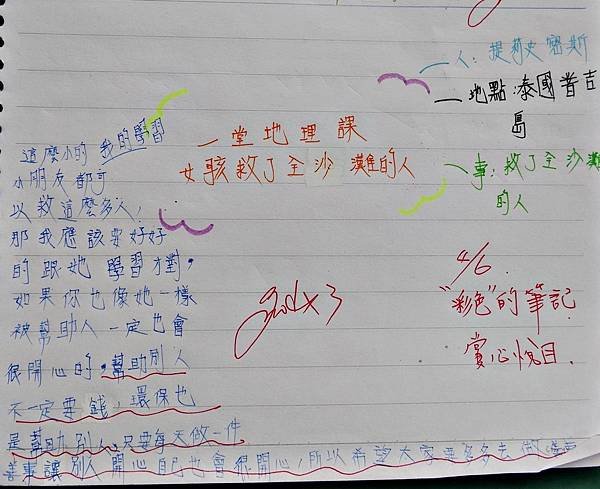 一人：提莉史密斯
一地點：泰國普吉
島
一堂地理課
女孩救了全沙灘的人
一事：救了全沙灘
的人
我的學習
這麼小的
小朋友都可
以救這麼多人，
那我應該要好好
的跟她學習才對，
如果你也像她一樣
被幫助人一定也會
很開心的，幫助別人
不一定要錢，環保也
是幫助別人，只要每天做一件
善事讓別人開心自己也會很開心，所以希望大家要多多去做善事
good x3
4/6.
"彩色"的筆記
賞心悅目.